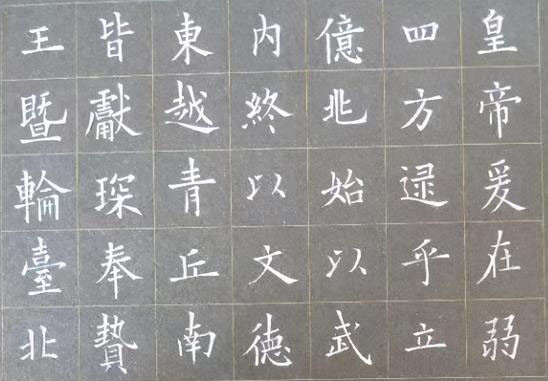 皇帝爰在弱
四方逮乎立
億兆始以武
内終以文德
東越青丘南
皆獻琛奉贄
王暨輪臺北